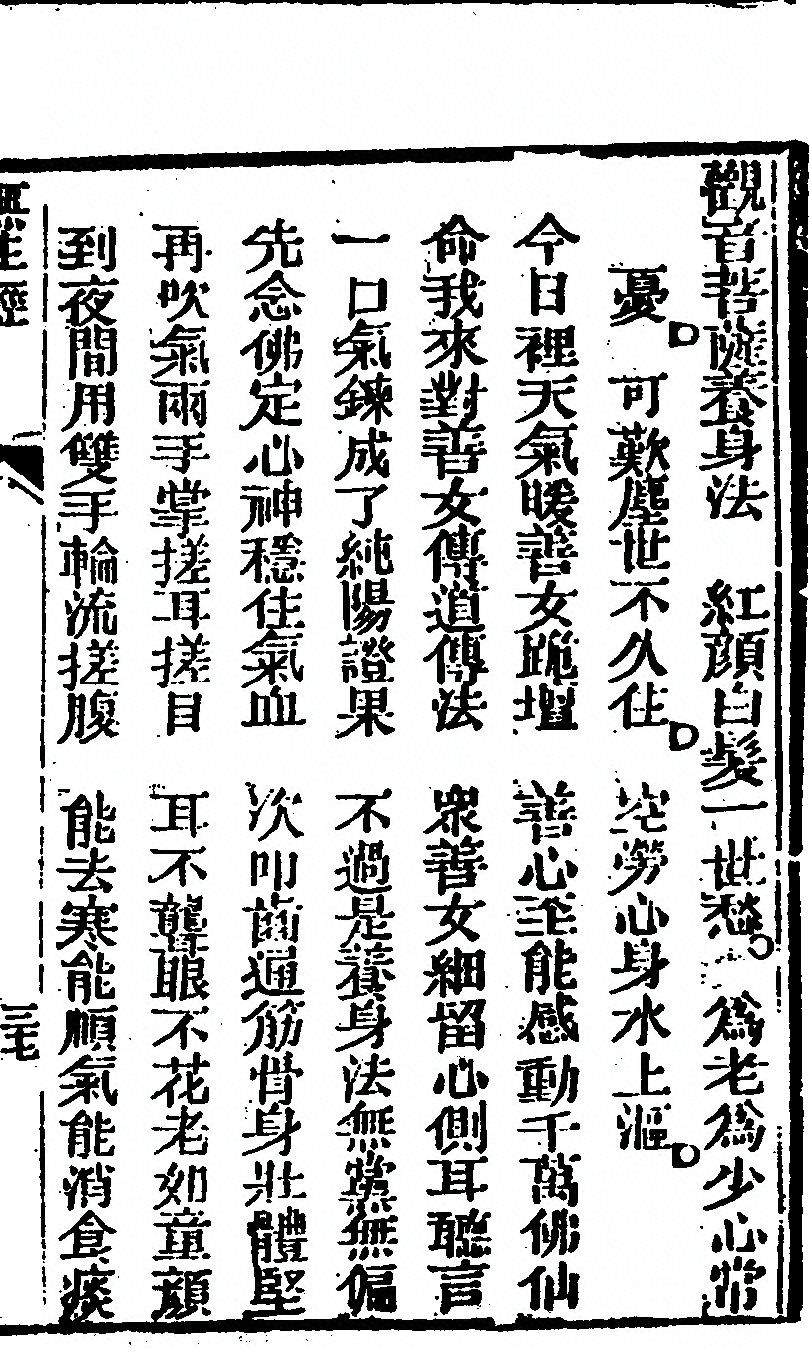 觀音菩薩養身法　紅顏白髮一世愁。為老為少心常
憂。可歎塵世不久住。空勞心身水上漚。
今日裡天氣暖善女跪壇　善心至能感動千萬佛仙
命我來對善女傳道傳法　衆善女細留心側耳聽言
一口氣鍊成了純陽證果　不過是養身法無黨無偏
先念佛定心神穩住氣血　次叩齒通筋骨身壯體堅
再吹氣兩手掌搓耳搓目　耳不聾眼不花老如童顏
到夜間用雙手輪流搓腹　能去寒能順氣能消食痰
經
三七